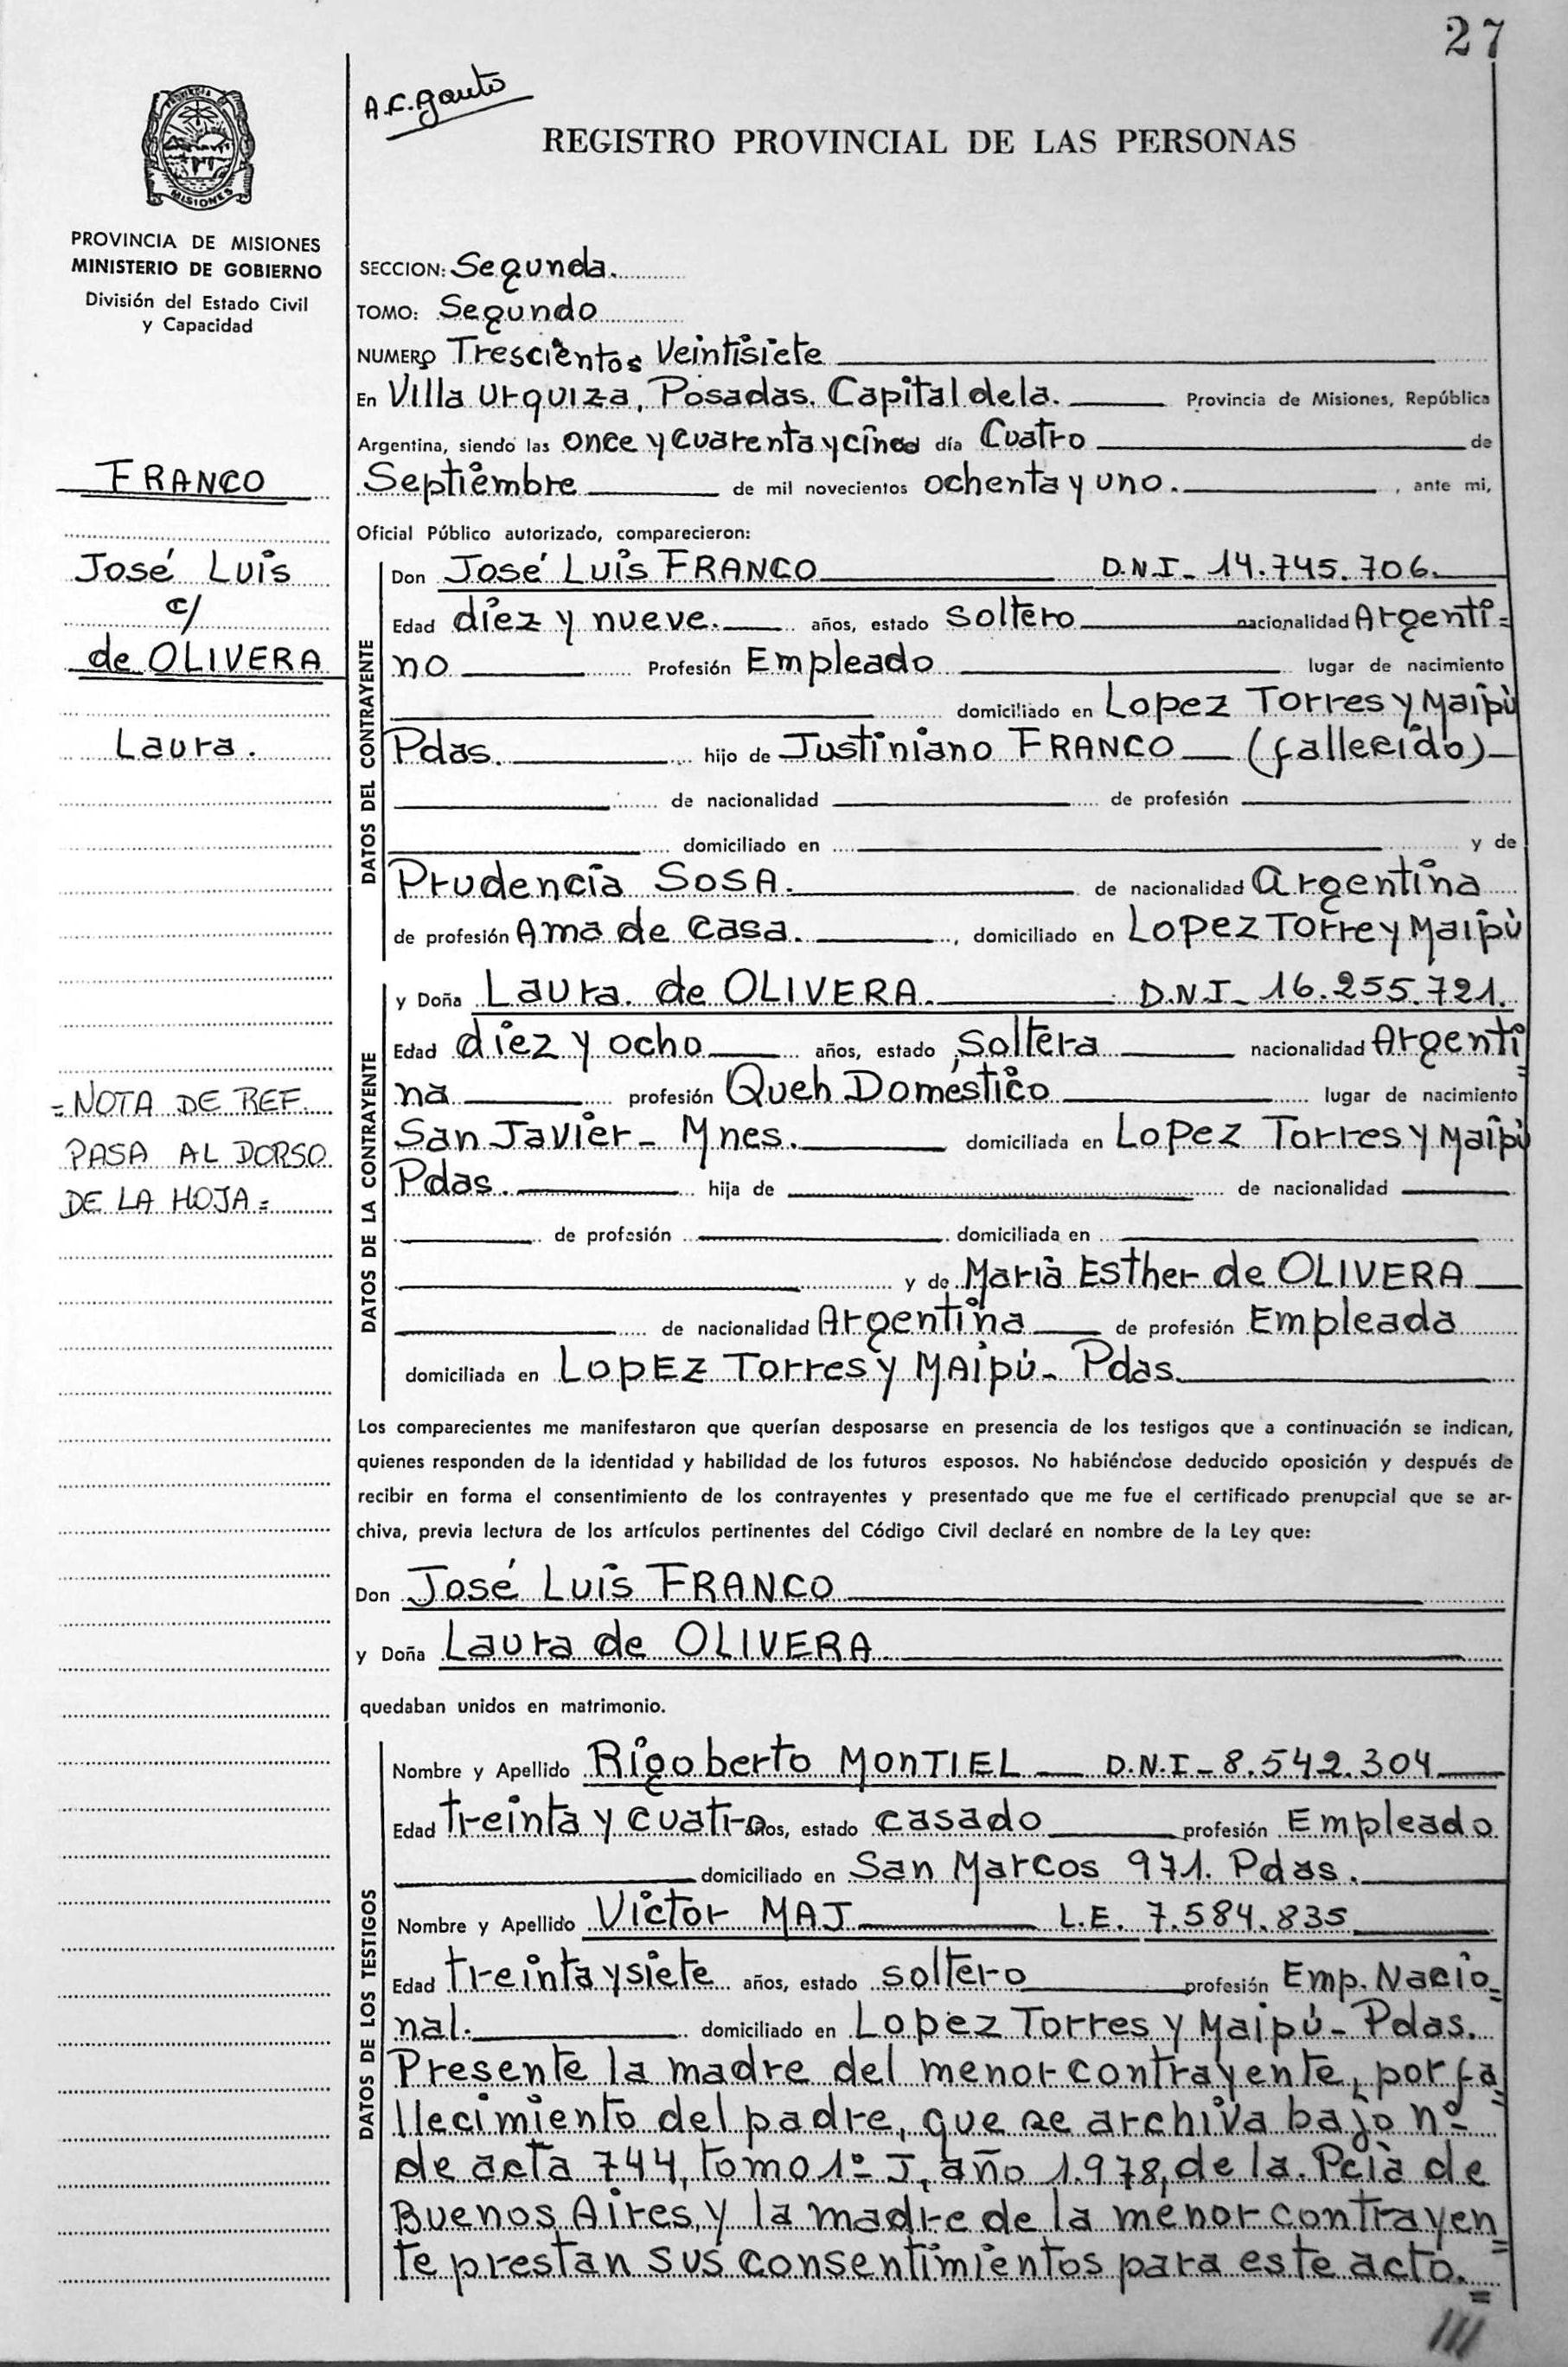 27
A.F. Gauto
REGISTRO PROVINCIAL DE LAS PERSONAS
PROVINCIA
MISIONES
PROVINCIA DE MISIONES
MINISTERIO DE GOBIERNO
División del Estado Civil
y Capacidad
FRANCO
José Luis
c/
de OLIVERA
Laura.
=NOTA DE REF.
PASA AL DORSO
DE LA HOJA=
SECCION: Segunda.
TOMO: Segundo
NUMERO Trescientos Veintisiete
En Villa Urquiza, Posadas. Capital de la. Provincia de Misiones, República
Argentina, siendo las once y cuarenta y cinco día Cuatro de
Septiembre de mil novecientos ochenta y uno. , ante mi,
Oficial Público autorizado, comparecieron:
DATOS DEL CONTRAYENTE
Don José Luis FRANCO D.N.I- 14.745.706.
Edad diez y nueve. años, estado soltero nacionalidad Argenti=
no Profesión Empleado lugar de nacimiento
domiciliado en Lopez Torres y Maipù
Pdas. hijo de Justiniano FRANCO (fallecido)
de nacionalidad de profesión
domiciliado en y de
Prudencia SOSA. de nacionalidad Argentina
de profesión Ama de casa. , domiciliado en Lopez Torre y Maipù
DATOS DE LA CONTRAYENTE
y Doña Laura. de OLIVERA. D.N.I- 16.255.721.
Edad diez y ocho años, estado soltera nacionalidad Argenti=
na profesión Queh Doméstico lugar de nacimiento
San Javier- Mnes. domiciliada en Lopez Torres y Maipù
Pdas. hija de de nacionalidad
de profesión domiciliada en
y de Marìa Esther de OLIVERA
de nacionalidad Argentina de profesión Empleada
domiciliada en LopEZ Torres y MAipú- Pdas.
Los comparecientes me manifestaron que querían desposarse en presencia de los testigos que a continuación se indican,
quienes responden de la identidad y habilidad de los futuros esposos. No habiéndose deducido oposición y después de
recibir en forma el consentimiento de los contrayentes y presentado que me fue el certificado prenupcial que se ar-
chiva, previa lectura de los artículos pertinentes del Código Civil declaré en nombre de la Ley que:
Don José Luis FRANCO
y Doña Laura de OLIVERA
quedaban unidos en matrimonio.
DATOS DE LOS TESTIGOS
Nombre y Apellido Rigoberto MONTIEL D.N.I- 8.542.304
Edad treinta y cuatro años, estado casado profesión Empleado
domiciliado en San Marcos 971. Pdas.
Nombre y Apellido Victor MAJ L.E. 7.584.835
Edad treinta y siete años, estado soltero profesión Emp. Nacio=
nal. domiciliado en Lopez Torres y Maipú- Pdas.
Presente la madre del menor contrayente, por fa=
llecimiento del padre, que se archiva bajo nº
de acta 744, tomo 1º J, año 1.978, de la. Pcià de
Buenos Aires, y la madre de la menor contrayen=
te prestan sus consentimientos para este acto.=
///